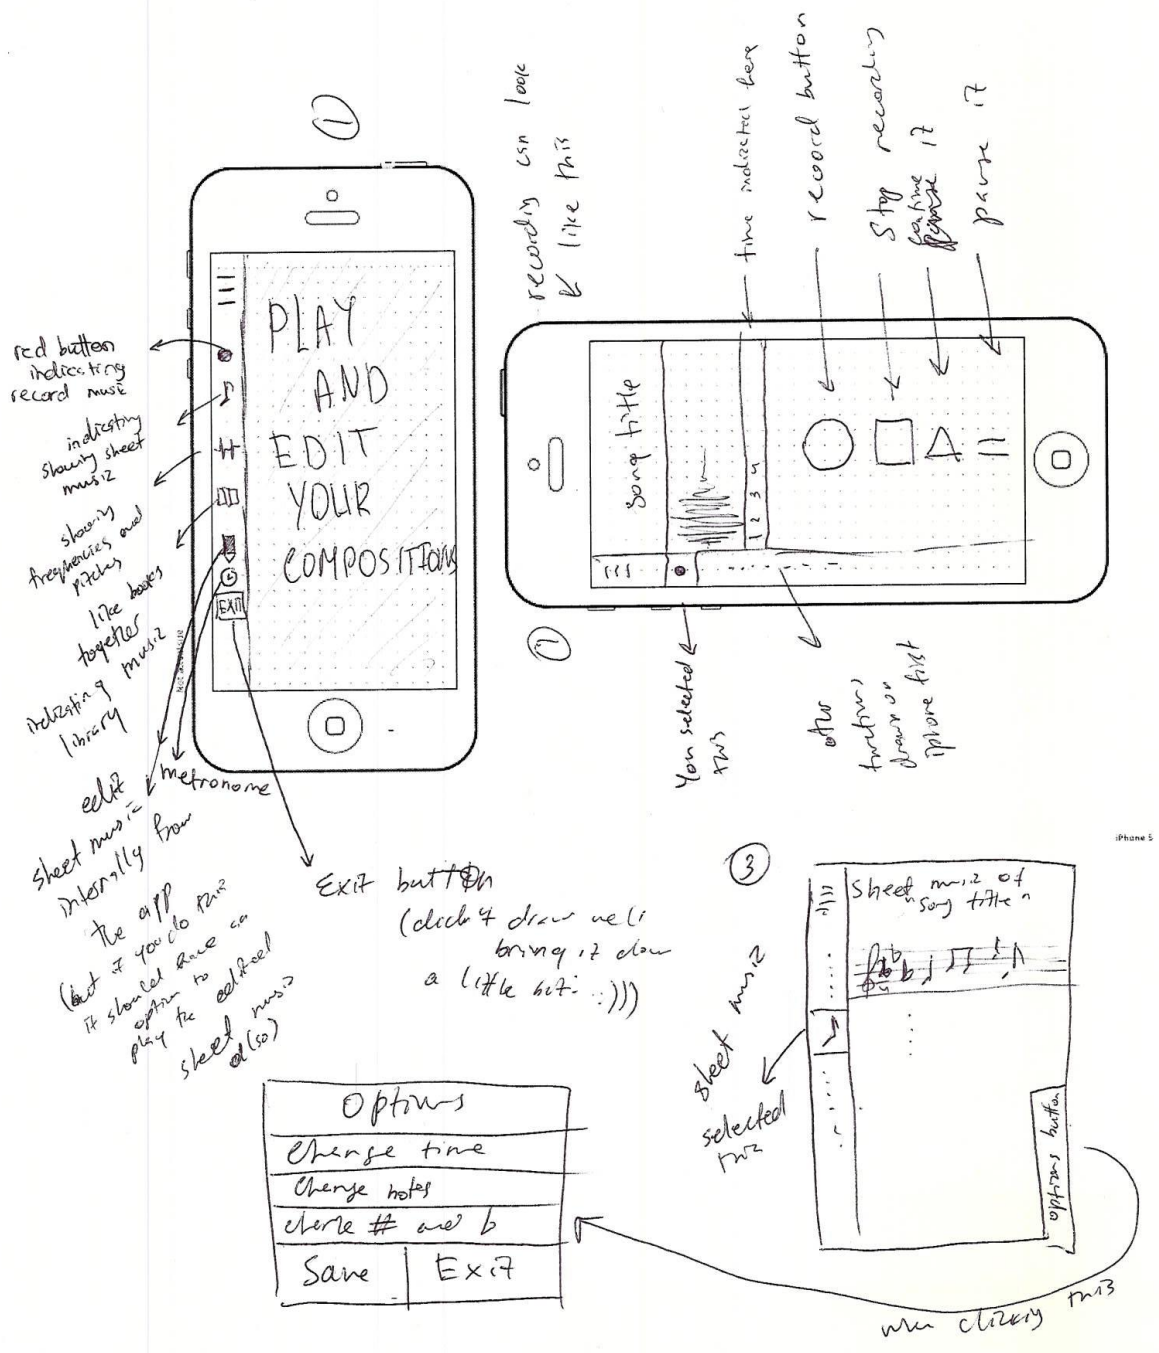 ①
PLAY
AND
EDIT
YOUR
COMPOSITIONS
EXIT
red button
indicating
record music
indicating
showing sheet
music
showing
frequencies and
pitches
like books
together
indicating music
library
edit
sheet music
internally from
the app
(but if you do this
it should have an
option to
play the edited
sheet music
also)
metronome
Exit button
(didn't draw well
bring it down
a little bit :)))
recording can look
like this
time indicated here
record button
stop recording
continue it
pause it
song title
1 2 3 4
You selected
this
functions
drawn on
iphone first
iPhone 5
③
sheet music of
"song title"
sheet music
selected
options button
when clicking this
Options
Change time
Change notes
# and b
Save
Exit